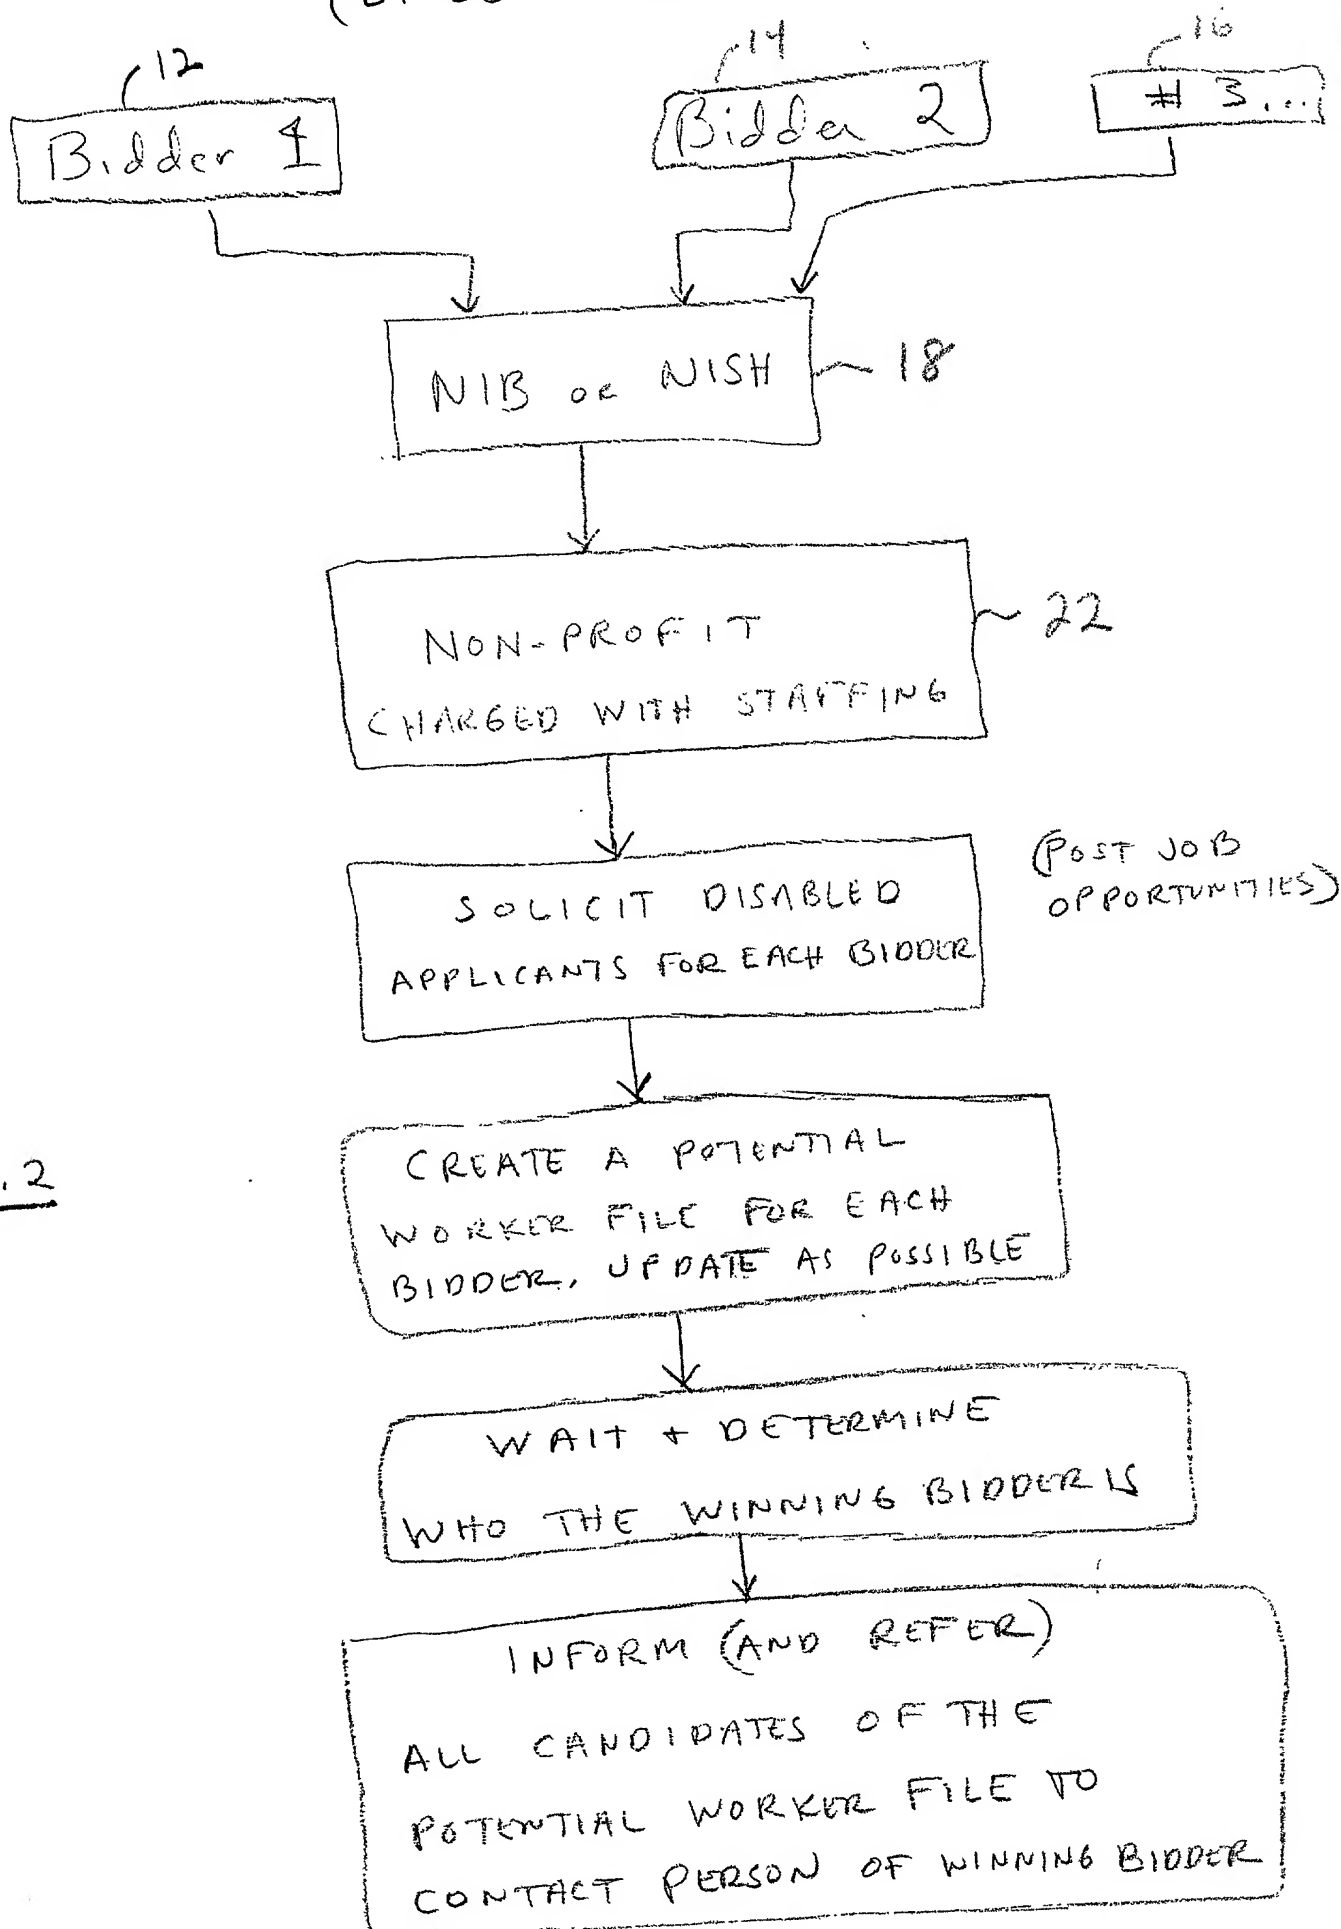 12
14
16
Bidder 1
Bidder 2
# 3...
NIB OR NISH
18
NON-PROFIT
CHARGED WITH STAFFING
22
SOLICIT DISABLED
APPLICANTS FOR EACH BIDDER
(POST JOB
OPPORTUNITIES)
CREATE A POTENTIAL
WORKER FILE FOR EACH
BIDDER, UPDATE AS POSSIBLE
.2
WAIT + DETERMINE
WHO THE WINNING BIDDER IS
INFORM (AND REFER)
ALL CANDIDATES OF THE
POTENTIAL WORKER FILE TO
CONTACT PERSON OF WINNING BIDDER